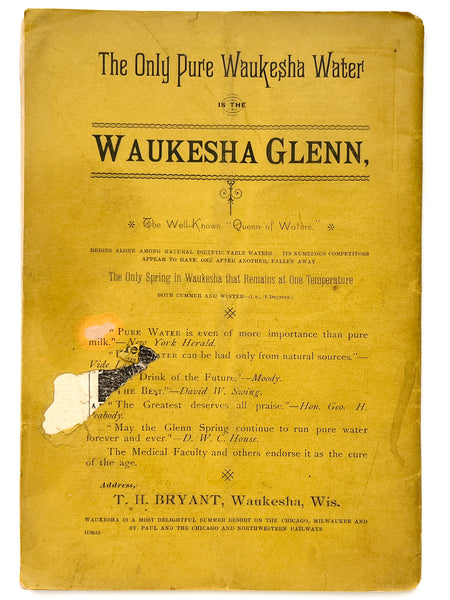 The Only Pure Waukesha Water
IS THE
WAUKESHA GLENN,
The Well-Known "Queen of Waters."
REIGNS ALONE AMONG NATURAL DIETETIC TABLE WATERS. ITS NUMEROUS COMPETITORS
APPEAR TO HAVE, ONE AFTER ANOTHER, FALLEN AWAY.
The Only Spring in Waukesha that Remains at One Temperature
BOTH SUMMER AND WINTER—(i.e., 8 Degrees.)
"PURE WATER is even of more importance than pure
milk."—New York Herald.
WATER can be had only from natural sources."—
Vide
Drink of the Future."—Moody.
THE BEST."—David W. Swing.
"The Greatest deserves all praise."—Hon. Geo. H.
Peabody.
"May the Glenn Spring continue to run pure water
forever and ever."—D. W. C. House.
The Medical Faculty and others endorse it as the cure
of the age.
Address,
T. H. BRYANT, Waukesha, Wis.
WAUKESHA IS A MOST DELIGHTFUL SUMMER RESORT ON THE CHICAGO, MILWAUKEE AND
ST. PAUL AND THE CHICAGO AND NORTHWESTERN RAILWAYS.